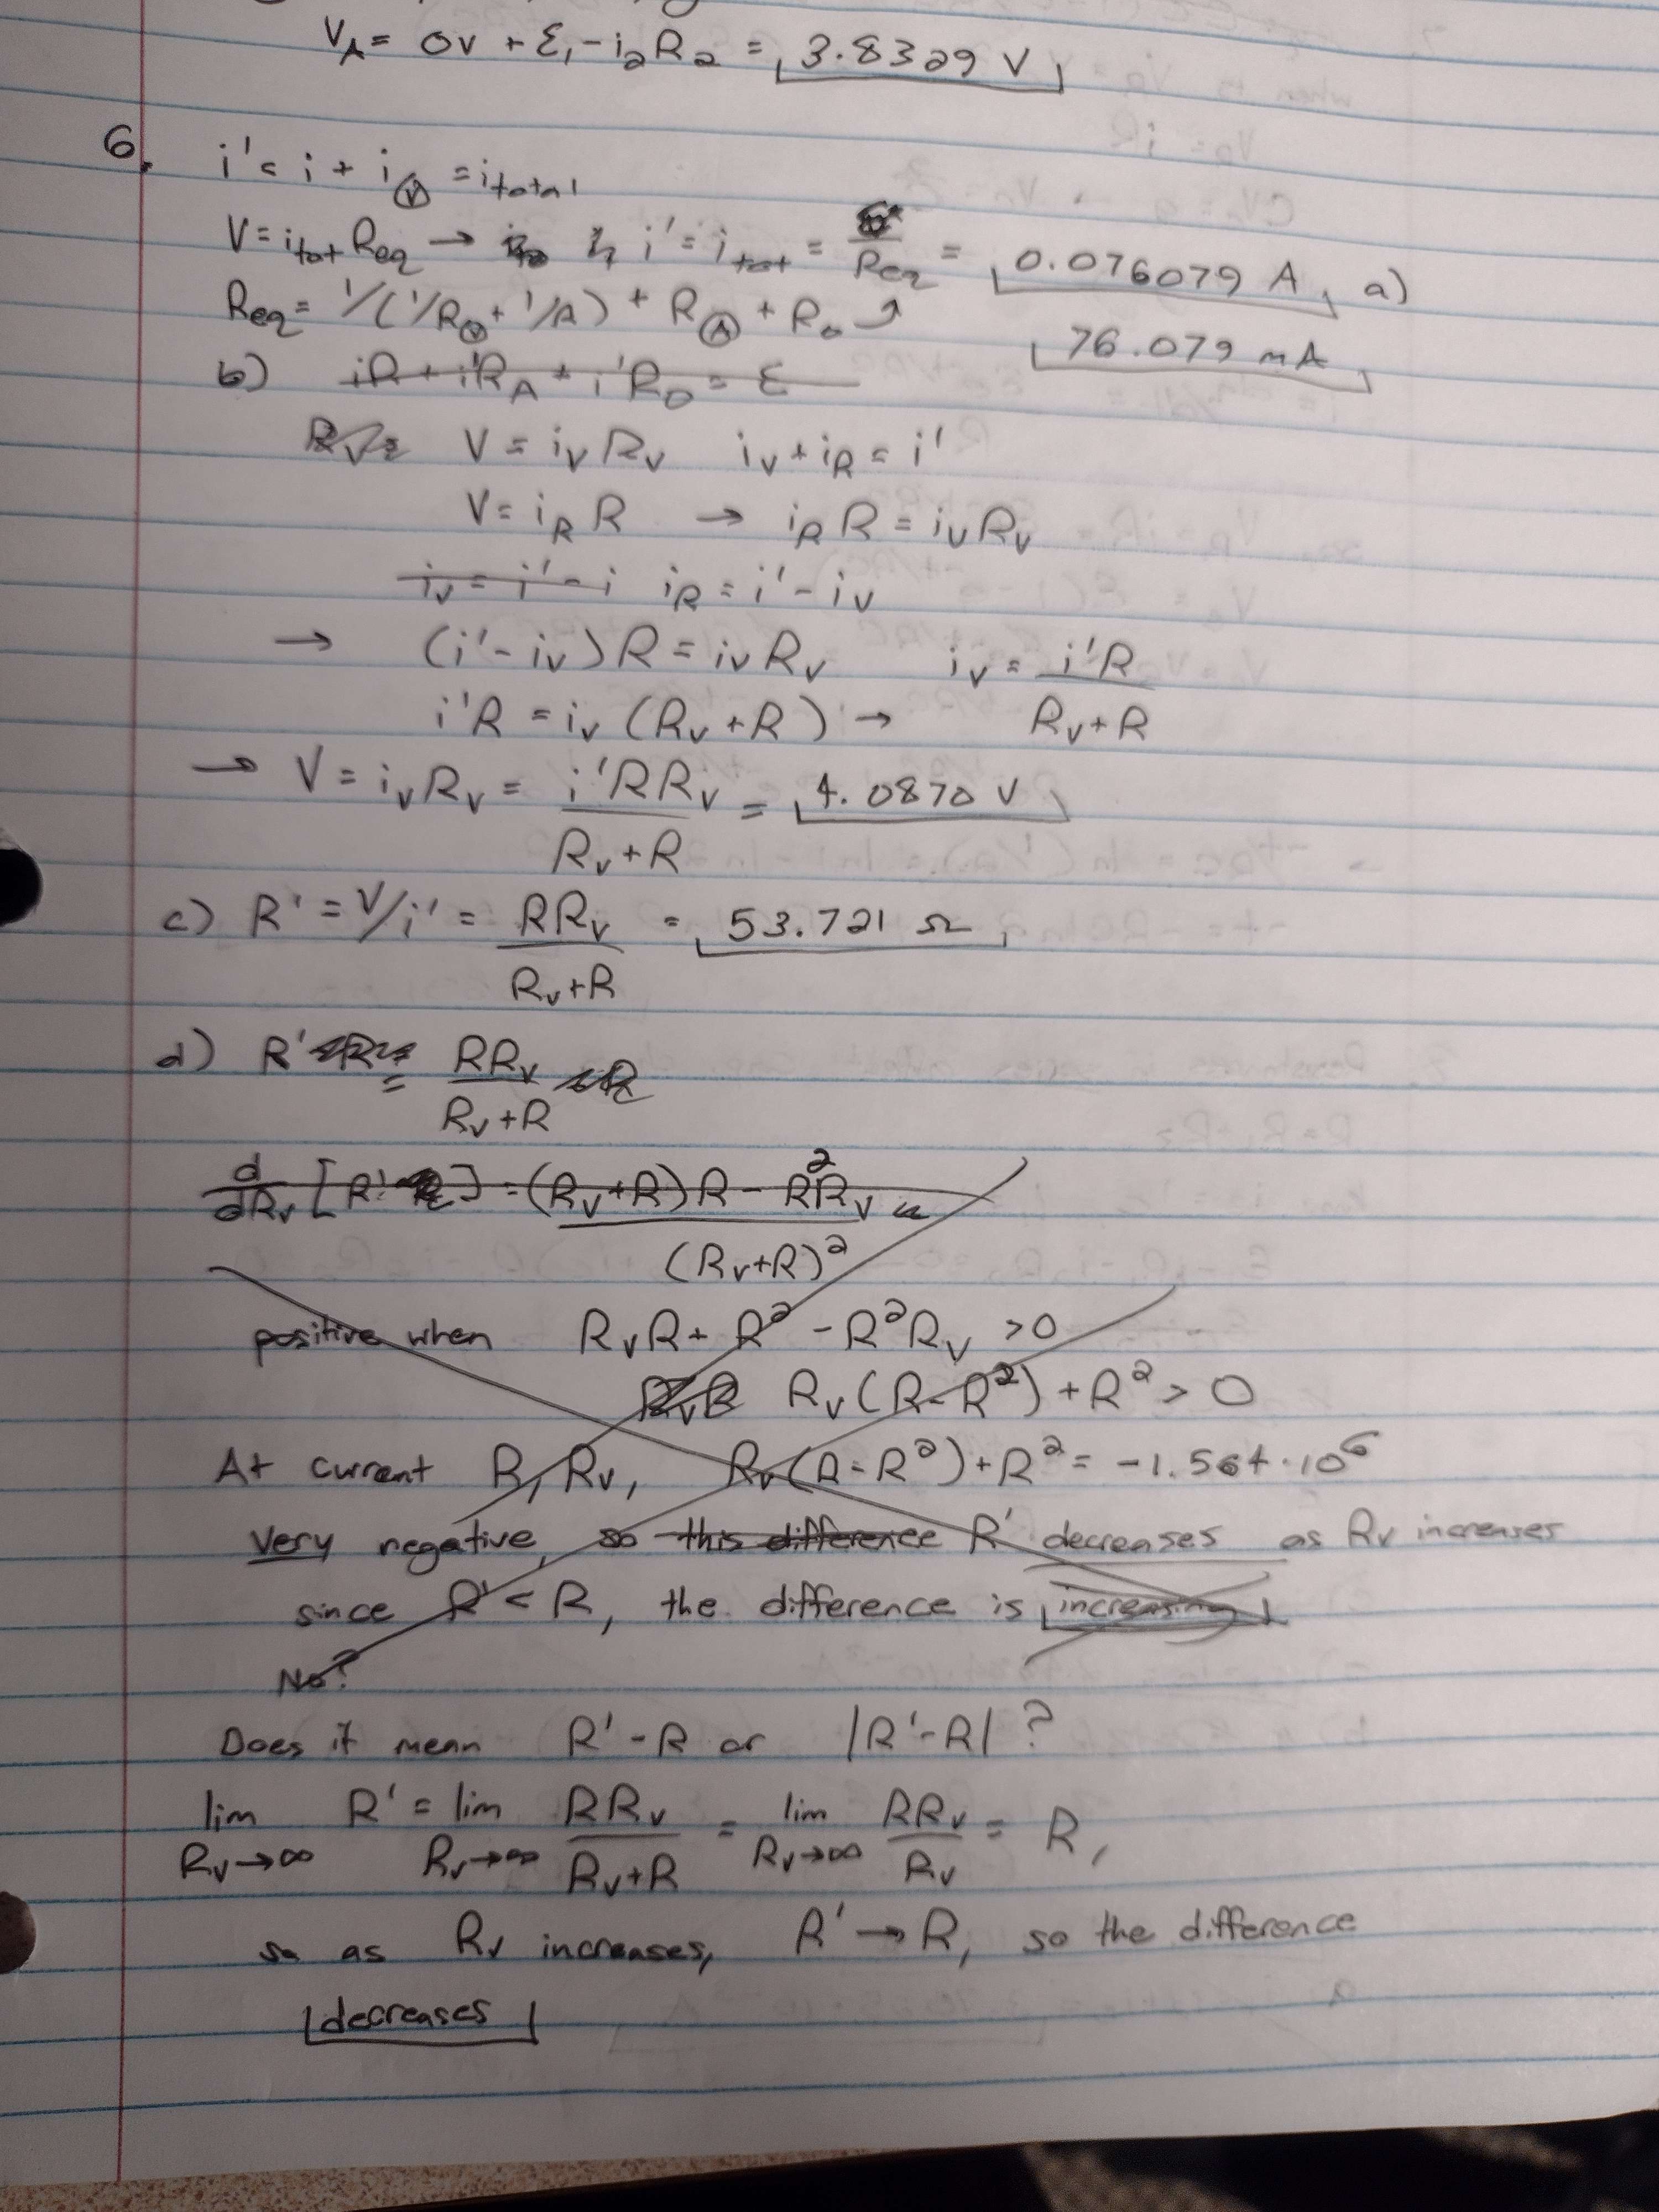 V_A = 0V + ε₁ - i₂R₂ = 3.8329 V
6. i' = i + i_Ⓥ = i_total
V = i_tot R_eq → i' = i_tot = /R_eq = 0.076079 A, a)
R_eq = 1/(1/R_Ⓥ + 1/R) + R_Ⓐ + R₀ ⤴
76.079 mA
b) iR + i'R_A + i'R_0 = ε
R_V = V = i_V R_V i_V + i_R = i'
V = i_R R → i_R R = i_V R_V
i_V = i' - i i_R = i' - i_V
→ (i' - i_V)R = i_V R_V i_V = i'R/(R_V + R)
i'R = i_V (R_V + R) →
→ V = i_V R_V = i'RR_V/(R_V + R) = 4.0870 V
c) R' = V/i' = RR_V/(R_V + R) = 53.721 Ω
d) R' = RR_V/(R_V + R)
d/dR_V [R'] = ((R_V + R)R - R²R_V)/(R_V + R)²
positive when R_V R + R² - R²R_V > 0
R_V R R_V (R - R²) + R² > 0
At current R, R_V, R_V (R - R²) + R² = -1.564·10⁶
Very negative, so this difference R' decreases as R_V increases
since R' < R, the difference is increasing
No?
Does it mean R' - R or |R' - R| ?
lim R_V→∞ R' = lim R_V→∞ RR_V/(R_V + R) = lim R_V→∞ RR_V/R_V = R,
so as R_V increases, R' → R, so the difference
decreases